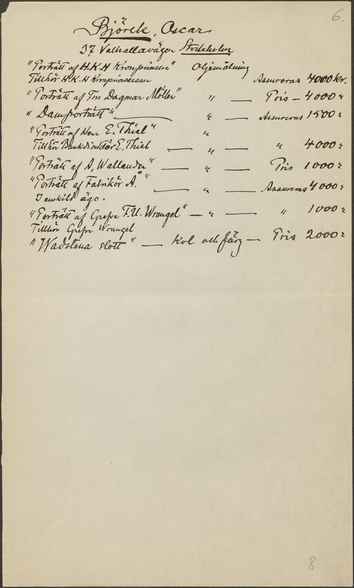 6.
Björck, Oscar
37 Valhallavägen Stockholm
"Porträtt af H.K.H Kronprinsen" Oljemålning
Tillhör H.K.H Kronprinsessan Assureras 4000 kr.
"Porträtt af Fru Dagmar Möller" " — Pris — 4000 "
"Damporträtt" — " — Assureras 1500 "
"Porträtt af Herr E. Thiel" "
Tillhör Bankdirektör E. Thiel — " — " 4000 "
"Porträtt af A. Wallander" — " — Pris 1000 "
"Porträtt af Fabrikör A." — " — Assureras 4000 "
I enskild ägo.
"Porträtt af Grefve F.U. Wrangel" — " — " 1000 "
Tillhör Grefve Wrangel
"Wadstena slott" — Kol och färg — Pris 2000 "
8